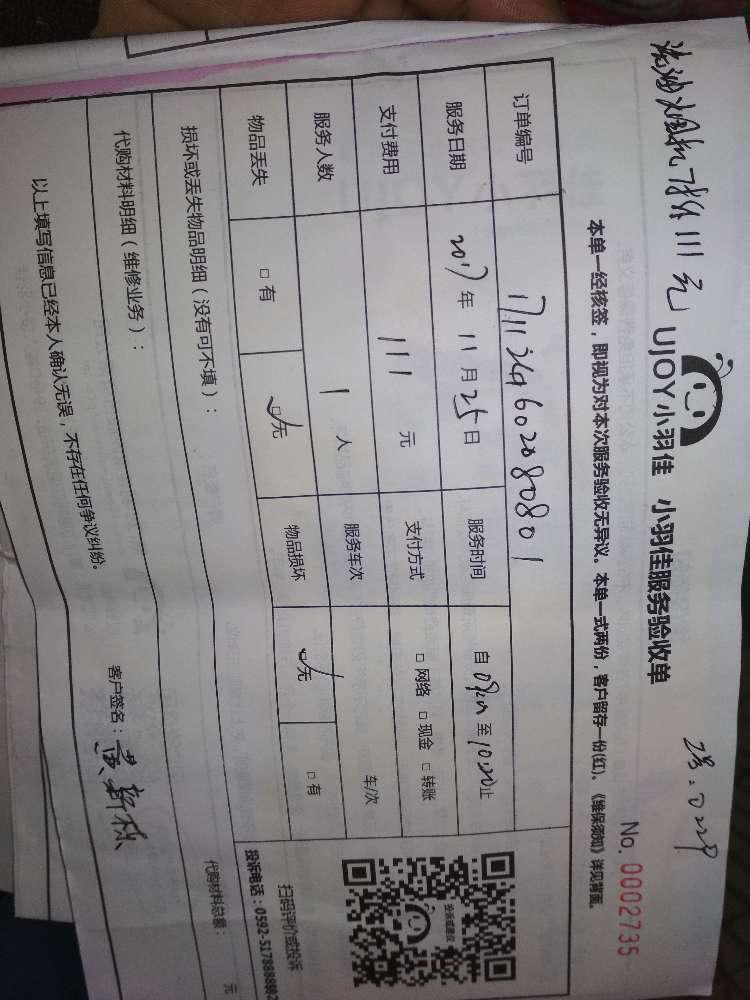 洗油烟机7折111元
UJOY小羽佳 小羽佳服务验收单
No. 0002735
本单一经核签，即视为对本次服务验收无异议。本单一式两份，客户留存一份(红)，《维保须知》详见背面。
订单编号
服务日期 2017年 11月 25日 服务时间 自 至 10:20 止
支付费用 111 元 支付方式 □ 网络 □ 现金 □ 转账
服务人数 1 人 服务车次 车/次
物品丢失 □ 有 ☑ 无 物品损坏 ☑ 无 □ 有
损坏或丢失物品明细（没有可不填）：
代购材料明细（维修业务）：
代购材料总额： 元
以上填写信息已经本人确认无误，不存在任何争议纠纷。
客户签名：
投诉或建议
扫码评价或投诉
投诉电话：0592-5178888转802